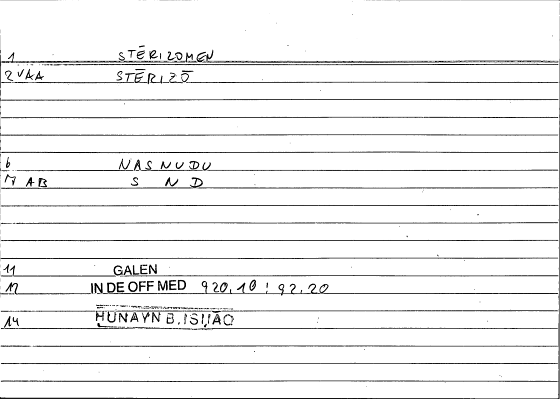 1 STĒRIZOMEN
2 VAA STĒRIZŌ
6 NASNUDU
17 AB S N D
11 GALEN
12 IN DE OFF MED 920,10 : 92.20
14 ḤUNAYN B. ISḤĀQ